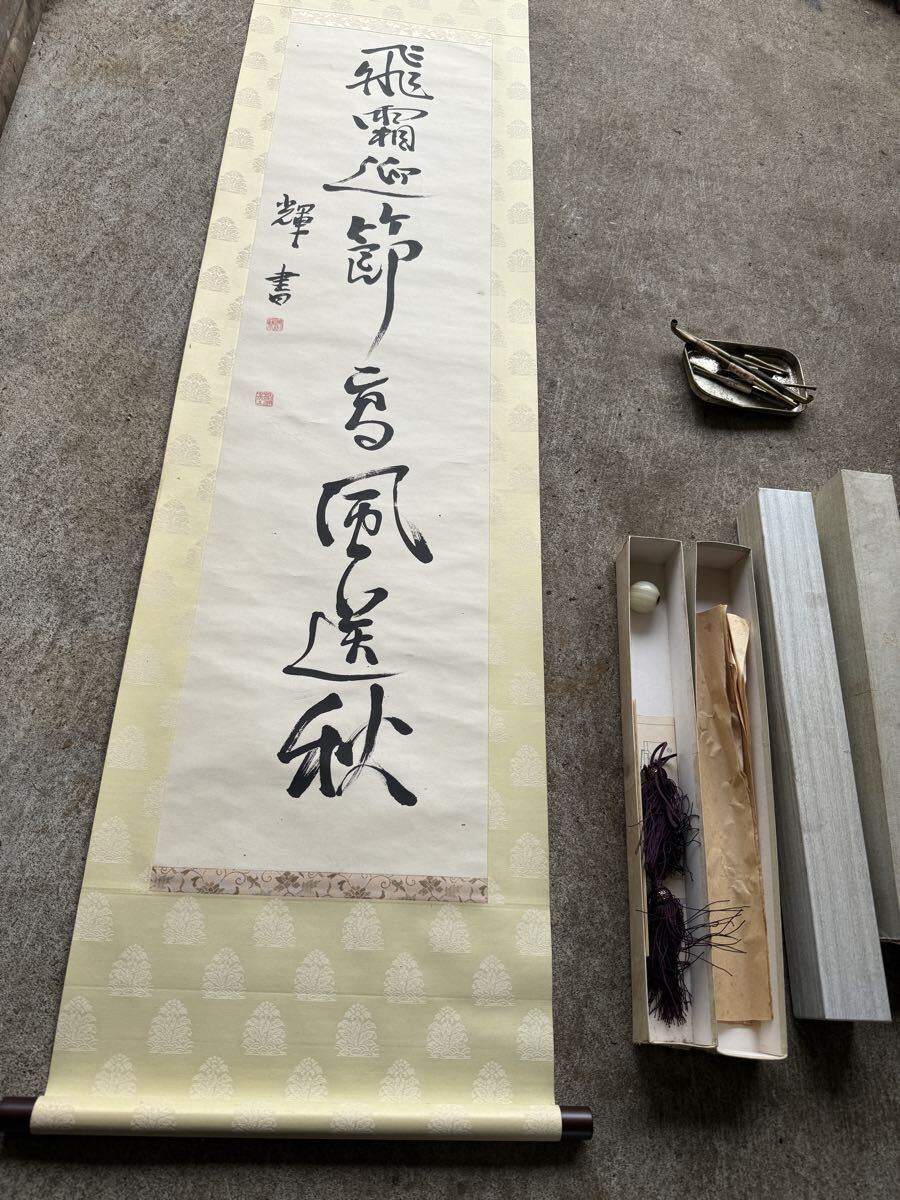 飛霜迎節高風送秋
輝書